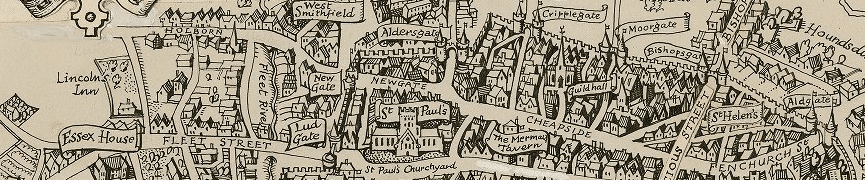 West
Smithfield
Cripplegate
Moorgate
HOLBORN
Aldersgate
Bishopsgat
Houndsd
BISHO
Lincolns
Inn
Fleet River
New
Gate
NEWGATE
Guildhall
Aldgate
St Paul's
St Helen's
Essex House
FLEET STREET
Lud
Gate
CHEAPSIDE
The Mermaid
Tavern
IOUS STREET
FENCHURCH St
St Paul's Churchyard